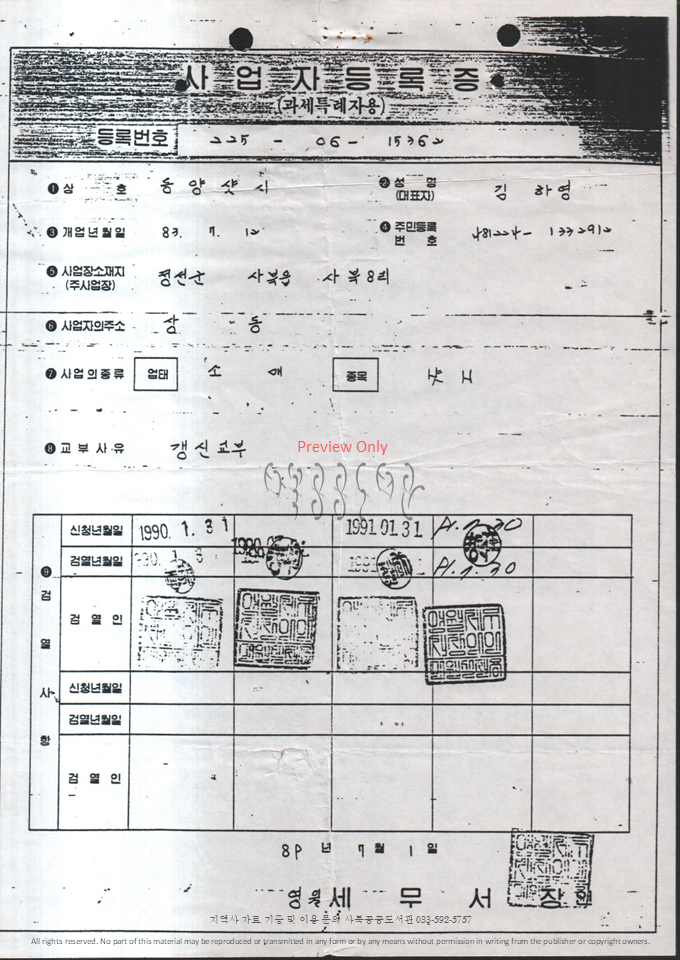 사업자등록증
(과세특례자용)
등록번호 225 - 06 - 15362
❶ 상 호 동양샷시 ❷ 성 명 (대표자) 김하영
❸ 개업년월일 83. 7. 12 ❹ 주민등록번호 481224 - 1332912
❺ 사업장소재지 (주사업장) 정선군 사북읍 사북8리
❻ 사업자의주소 상 동
❼ 사업의종류 업태 소 매 종목 샷시
❽ 교부사유 갱신교부
Preview Only
신청년월일 1990. 1. 31 1991. 01. 31. 91. 7. 30
검열년월일 91. 7. 30
❾ 검열사항
검 열 인
신청년월일
검열년월일
검 열 인
89 년 7 월 1 일
영월세무서장 인
지역사 자료 기증 및 이용 문의 사북공공도서관 033-592-5757
All rights reserved. No part of this material may be reproduced or transmitted in any form or by any means without permission in writing from the publisher or copyright owners.